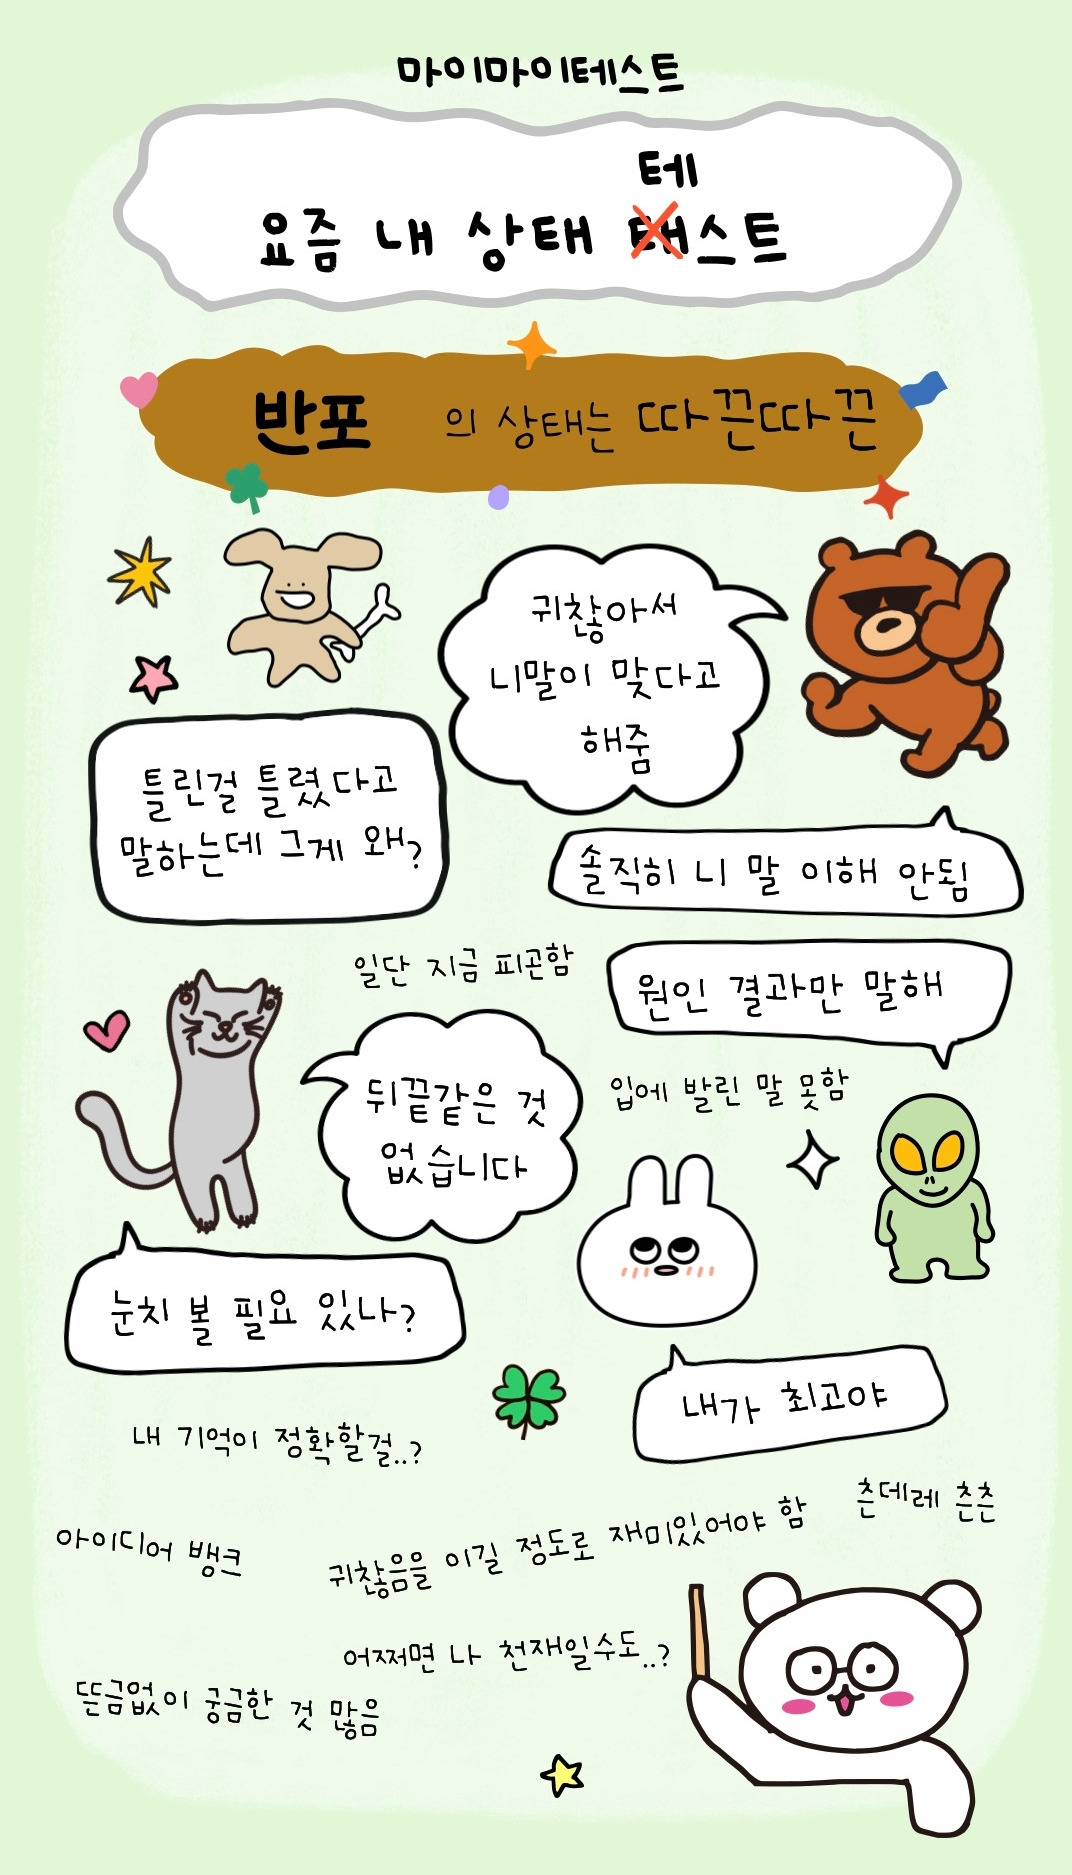 마이마이테스트
테
요즘 내 상태 태스트
반포 의 상태는 따끈따끈
귀찮아서
니말이 맞다고
해줌
틀린걸 틀렸다고
말하는데 그게 왜?
솔직히 니 말 이해 안됨
일단 지금 피곤함
원인 결과만 말해
뒤끝같은 것
없습니다
입에 발린 말 못함
눈치 볼 필요 있나?
내가 최고야
내 기억이 정확할걸..?
츤데레 츤츤
아이디어 뱅크
귀찮음을 이길 정도로 재미있어야 함
어쩌면 나 천재일수도..?
뜬금없이 궁금한 것 많음